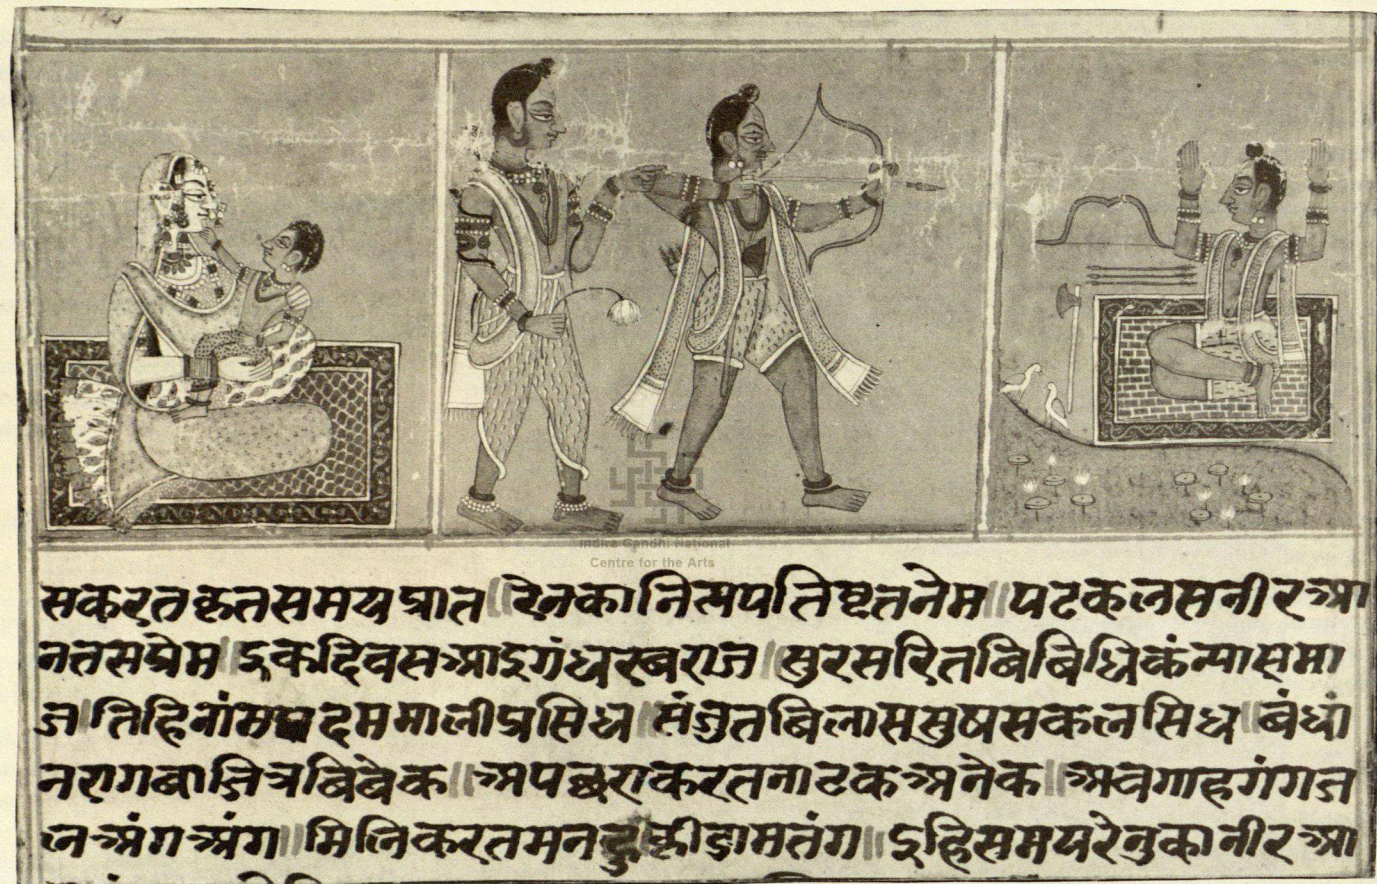 Indira Gandhi National
Centre for the Arts
सकरतकृतसमयप्रात॥रेनकानित्यपतिष्टतनेम॥पटकलसनीरआ
नतसप्रेम॥इकदिवसआइगंधरबराज॥सुरसरितबिबिधिकंन्यासमा
ज॥तिहिनांम दममालीप्रसिध॥संजुतबिलाससुषसकलसिध॥बंधां
नरागबाजित्रबिबेक॥अपछराकरतनाटकअनेक॥अवगाहगंगज
लअंगअंग॥मिलिकरतमन क्रीडामतंग॥इहिसमयरेनुकानीरआ